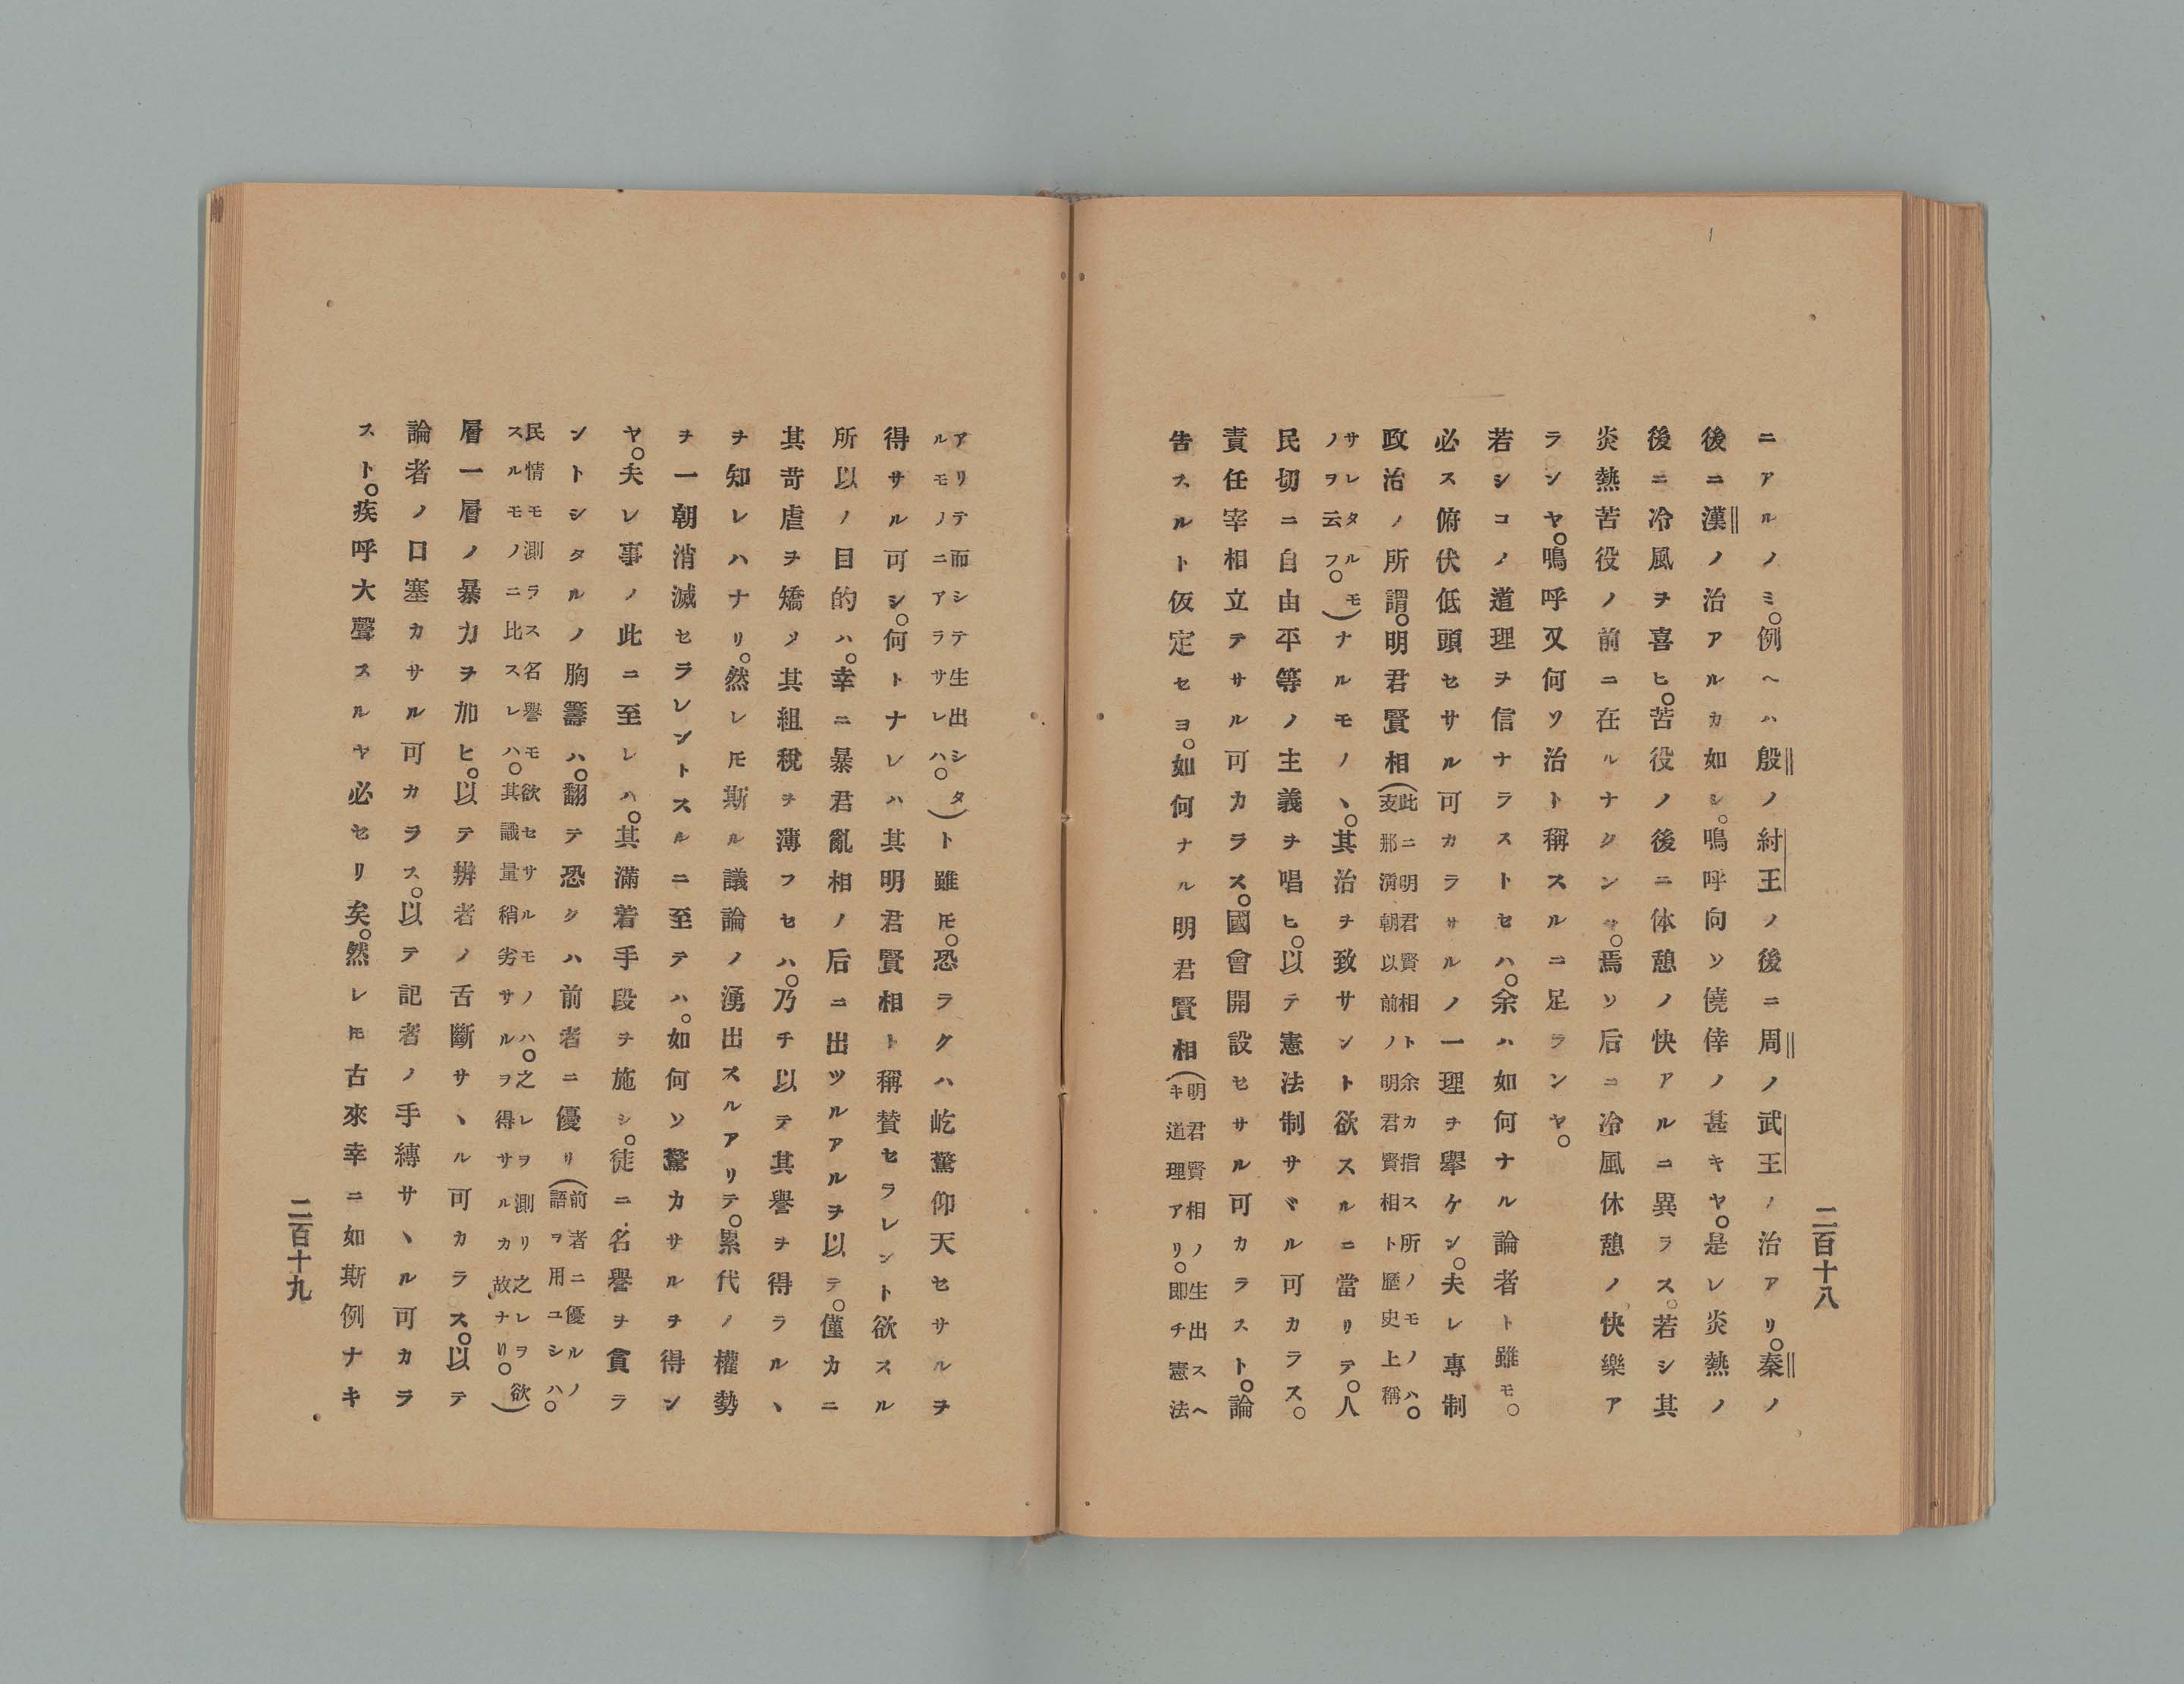 二百十八
ニアルノミ。例ヘハ殷ノ紂王ノ後ニ周ノ武王ノ治アリ。秦ノ
後ニ漢ノ治アルカ如シ。嗚呼向ソ僥倖ノ甚キヤ。是レ炎熱ノ
後ニ冷風ヲ喜ヒ。苦役ノ後ニ体憩ノ快アルニ異ラス。若シ其
炎熱苦役ノ前ニ在ルナクンハ。焉ソ后ニ冷風休憩ノ快樂ア
ランヤ。嗚呼又何ソ治ト稱スルニ足ランヤ。
若シコノ道理ヲ信ナラストセハ。余ハ如何ナル論者ト雖モ。
必ス俯伏低頭セサル可カラサルノ一理ヲ擧ケン。夫レ專制
政治ノ所謂。明君賢相(此ニ明君賢相ト余カ指ス所ノモノハ。
支那漢朝以前ノ明君賢相ト歷史上稱
サレタルモ
ノヲ云フ。)ナルモノヽ。其治ヲ致サント欲スルニ當リテ。人
民切ニ自由平等ノ主義ヲ唱ヒ。以テ憲法制サヾル可カラス。
責任宰相立テサル可カラス。國會開設セサル可カラスト。論
告スルト仮定セヨ。如何ナル明君賢相(明君賢相ノ生出スヘ
キ道理アリ。即チ憲法
アリテ而シテ生出シタ
ルモノニアラサレハ。)ト雖モ。恐ラクハ屹驚仰天セサルヲ
得サル可シ。何トナレハ其明君賢相ト稱賛セラレント欲スル
所以ノ目的ハ。幸ニ暴君亂相ノ后ニ出ツルアルヲ以テ。僅カニ
其苛虐ヲ矯メ其組稅ヲ薄フセハ。乃チ以テ其譽ヲ得ラルヽ
ヲ知レハナリ。然レ𪜈斯ル議論ノ湧出スルアリテ。累代ノ權勢
ヲ一朝消滅セラレントスルニ至テハ。如何ソ驚カサルヲ得ン
ヤ。夫レ事ノ此ニ至レハ。其滿着手段ヲ施シ。徒ニ名譽ヲ貪ラ
ントシタルノ胸籌ハ。翻テ恐クハ前者ニ優リ(前者ニ優ルノ
語ヲ用ユシハ。
民情モ測ラス名譽モ欲セサルモノハ。之レヲ測リ之レヲ欲
スルモノニ比スレハ。其識量稍劣サルヲ得サルカ故ナリ。)
層一層ノ暴力ヲ加ヒ。以テ辨者ノ舌斷サヽル可カラス。以テ
論者ノ口塞カサル可カラス。以テ記者ノ手縛サヽル可カラ
スト。疾呼大聲スルヤ必セリ矣。然レ𪜈古來幸ニ如斯例ナキ
二百十九